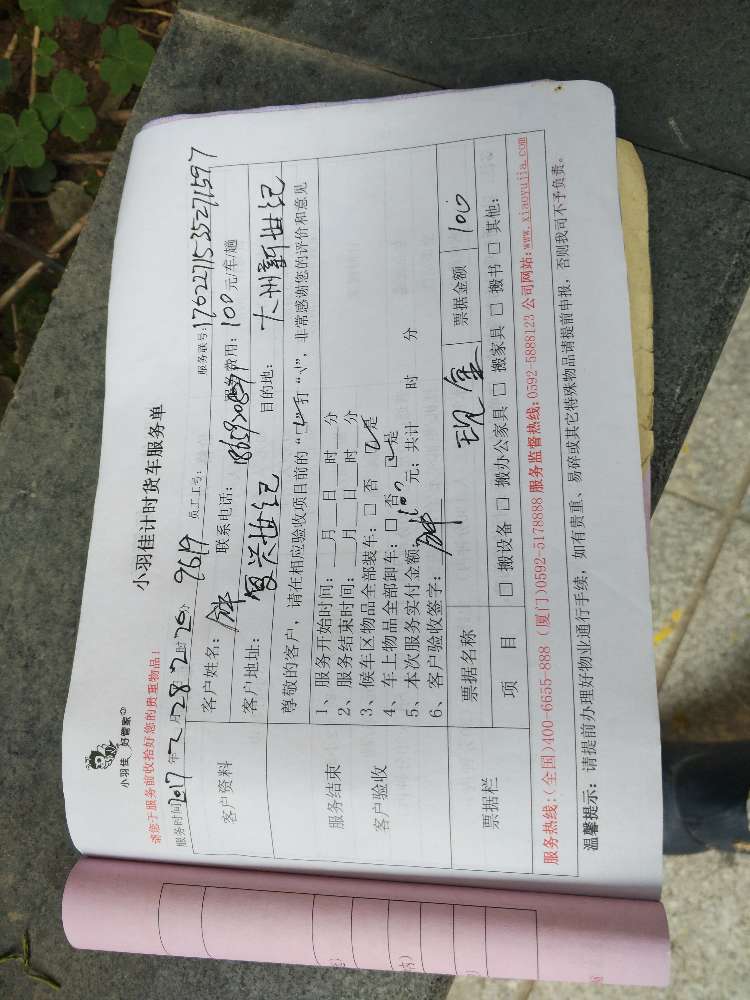 小羽佳 好管家
小羽佳计时货车服务单
请您于服务前收拾好您的贵重物品!
服务时间2017年2月28日2时20分 9619 员工工号: 服务联号:1762271535271597
客户资料
客户姓名: 联系电话: 服务费用:100元/车/趟
客户地址:复兴世纪 目的地:大州新世纪
服务结束
客户验收
尊敬的客户,请在相应验收项目前的“□”打“√”,非常感谢您的评价和意见
1、服务开始时间:___月___日___时___分
2、服务结束时间:___月___日___时___分
3、候车区物品全部装车:□ 否 ☑是
4、车上物品全部卸车:□ 否 ☑是
5、本次服务实付金额:100元;共计 时 分
6、客户验收签字:
票据栏
票据名称 现金 票据金额 100
项 目 □ 搬设备 □ 搬办公家具 □ 搬家具 □ 搬书 □ 其他:
服务热线:(全国)400-6655-888 (厦门)0592-5178888 服务监督热线:0592-5888123 公司网站:www.xiaoyujia.com
温馨提示:请提前办理好物业通行手续,如有贵重、易碎或其它特殊物品请提前申报,否则我司不予负责。